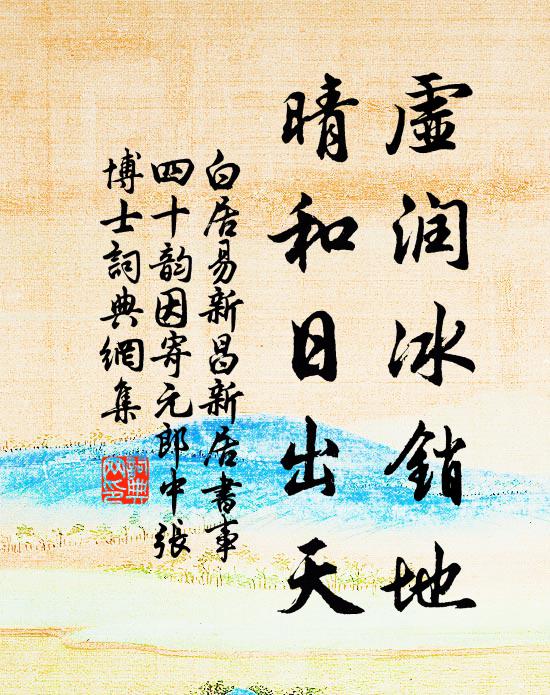 虛润冰銷地
晴和日出天
白居易新昌新居書事
四十韵因寄元郎中張
博士詞典網集